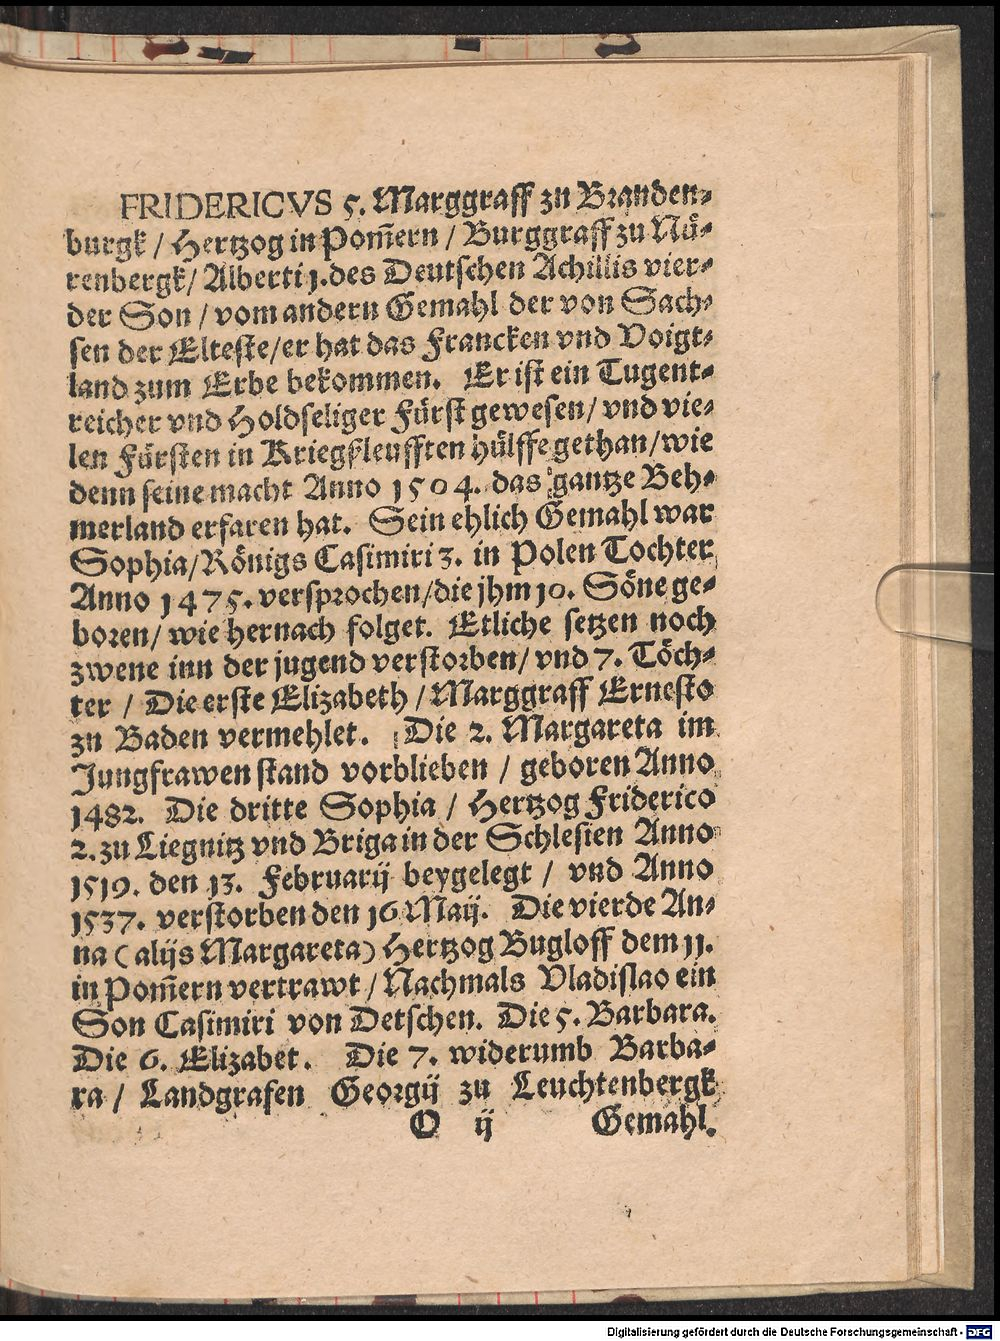 FRIDERICVS 5. Marggraff zu Branden-
burgk / Hertzog in Pom̄ern / Burggraff zu Nü-
renbergk / Alberti 1. des Deutschen Achillis vier-
der Son / vom andern Gemahl der von Sach-
sen der Elteste / er hat das Francken vnd Voigt-
land zum Erbe bekommen. Er ist ein Tugent-
reicher vnd Holdseliger Fürst gewesen / vnd vie-
len Fürsten in Kriegßleufften hülffe gethan / wie
denn seine macht Anno 1504. das gantze Beh-
merland erfaren hat. Sein ehlich Gemahl war
Sophia / Königs Casimiri 3. in Polen Tochter
Anno 1475. versprochen / die jhm 10. Söne ge-
boren / wie hernach folget. Etliche setzen noch
zwene inn der jugend verstorben / vnd 7. Töch-
ter / Die erste Elizabeth / Marggraff Ernesto
zu Baden vermehlet. Die 2. Margareta im
Jungfrawen stand vorblieben / geboren Anno
1482. Die dritte Sophia / Hertzog Friderico
2. zu Liegnitz vnd Briga in der Schlesien Anno
1519. den 13. Februarij beygelegt / vnd Anno
1537. verstorben den 16 Maij. Die vierde An-
na (alijs Margareta) Hertzog Bugloff dem 11.
in Pom̄ern vertrawt / Nachmals Vladislao ein
Son Casimiri von Detschen. Die 5. Barbara.
Die 6. Elizabet. Die 7. widerumb Barba-
ra / Landgrafen Georgij zu Leuchtenbergk
O ij Gemahl.
Digitalisierung gefördert durch die Deutsche Forschungsgemeinschaft - DFG